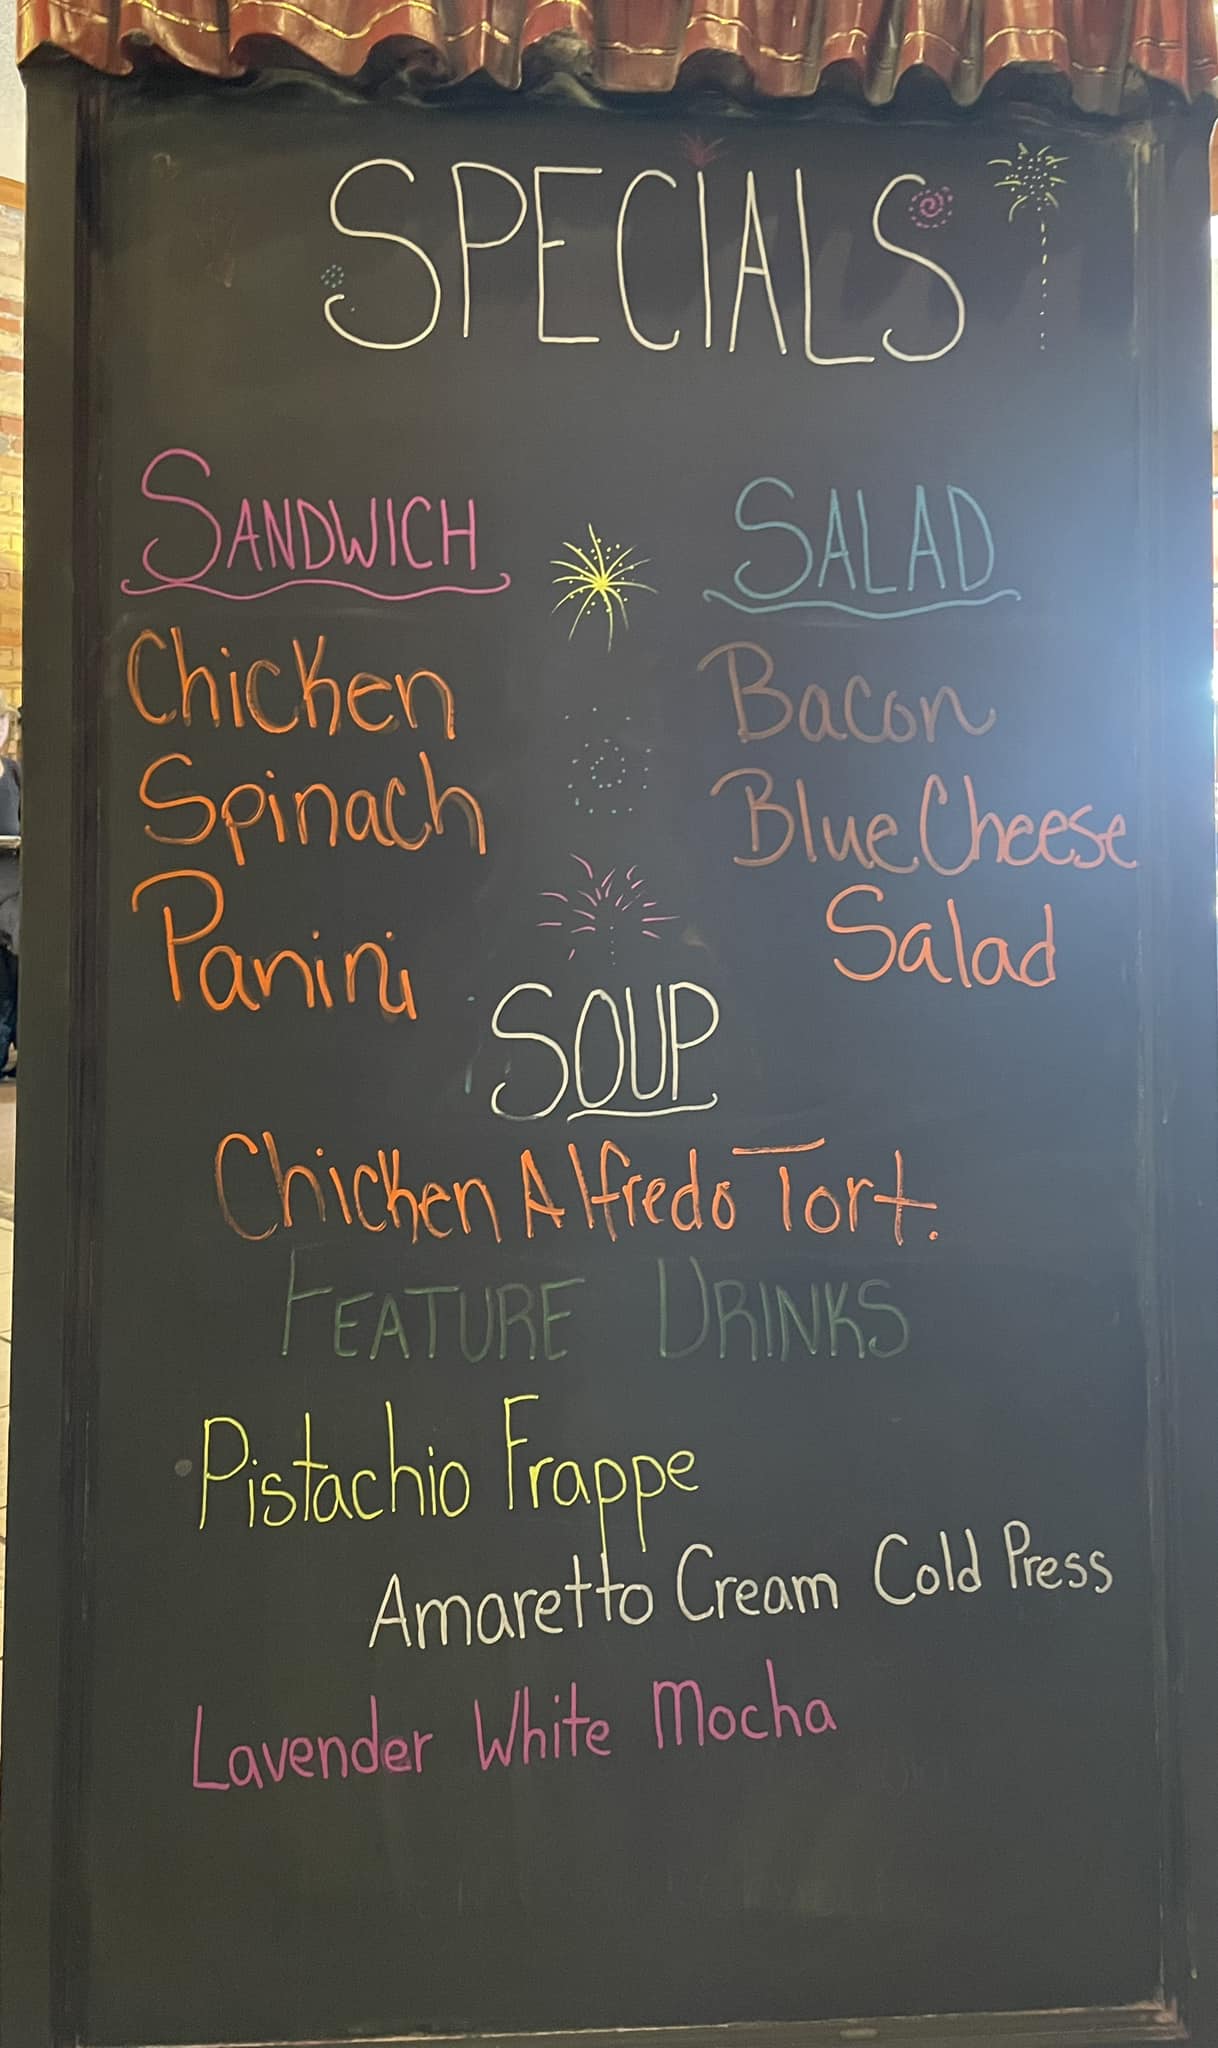 SPECIALS
SANDWICH
Chicken
Spinach
Panini
SALAD
Bacon
Blue Cheese
Salad
SOUP
Chicken Alfredo Tort.
FEATURE DRINKS
Pistachio Frappe
Amaretto Cream Cold Press
Lavender White Mocha